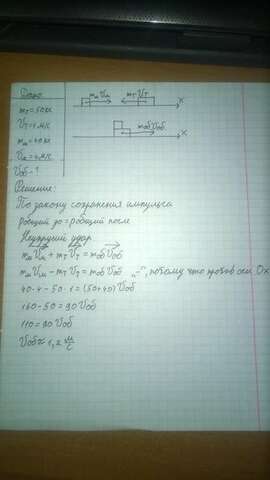 Дано
mт = 50 кг
Vт = 1 м/с
mм = 40 кг
Vм = 4 м/с
Vоб - ?
mмVм mтVт
x
mобVоб
x
Решение:
По закону сохранения импульса
Pобщий до = Pобщий после
Неупругий удар
mмVм + mтVт = mобVоб
mмVм - mтVт = mобVоб „-", потому что против оси Ox
40·4 - 50·1 = (50+40)Vоб
160 - 50 = 90 Vоб
110 = 90 Vоб
Vоб ≈ 1,2 м/с